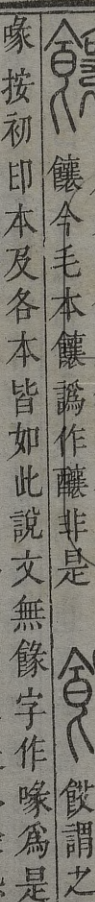 饟今毛本饟譌作釀非是　餀謂之
喙按初印本及各本皆如此說文無餯字作喙爲是